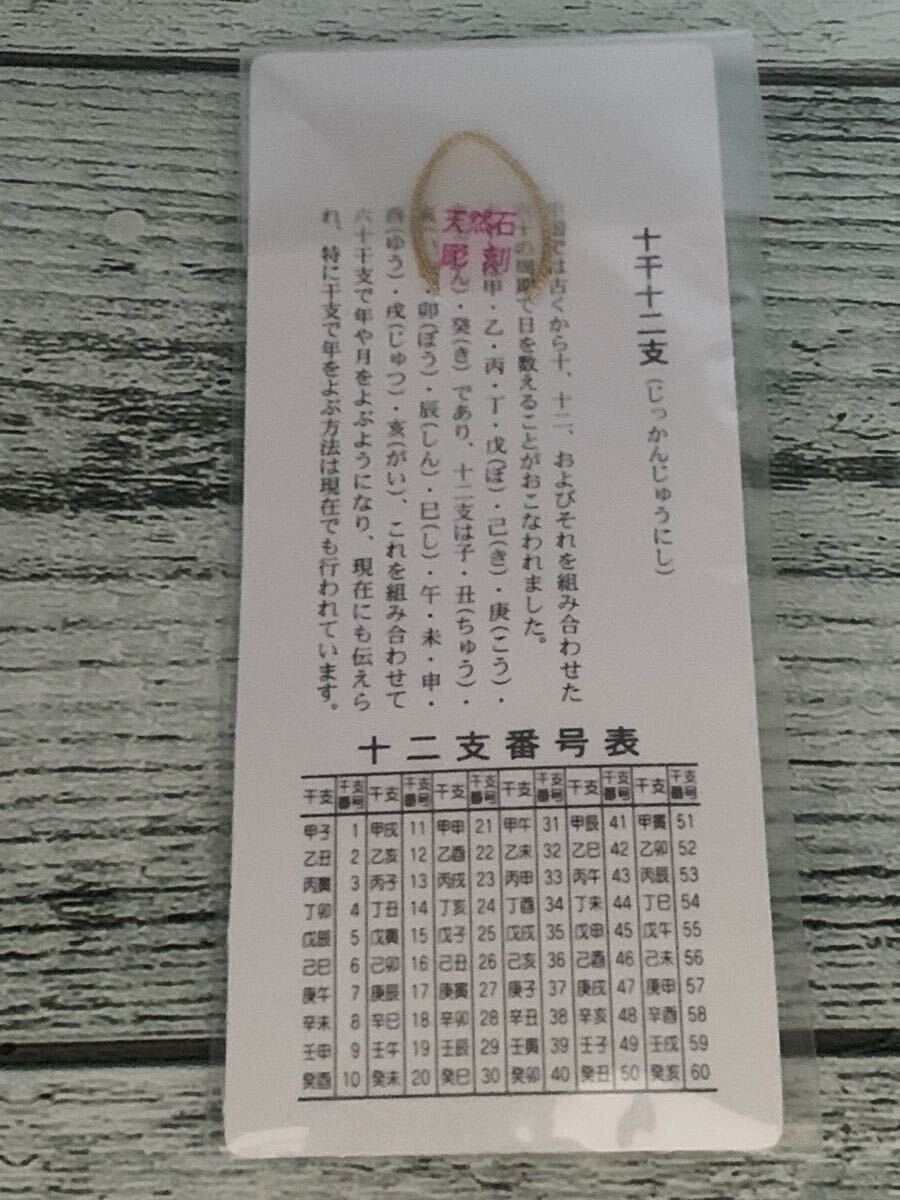 十干十二支(じっかんじゅうにし)
では古くから十、十二、およびそれを組み合わせた
の周期で日を数えることがおこなわれました。
甲・乙・丙・丁・戊(ぼ)・己(き)・庚(こう)・
ん)・癸(き)であり、十二支は子・丑(ちゅう)・
・卯(ぼう)・辰(しん)・巳(し)・午・未・申・
酉(ゆう)・戌(じゅつ)・亥(がい)、これを組み合わせて
六十干支で年や月をよぶようになり、現在にも伝えら
れ、特に干支で年をよぶ方法は現在でも行われています。
天然石
彫刻
十二支番号表
干支 干支番号 干支 干支番号 干支 干支番号 干支 干支番号 干支 干支番号 干支 干支番号
甲子 1 甲戌 11 甲申 21 甲午 31 甲辰 41 甲寅 51
乙丑 2 乙亥 12 乙酉 22 乙未 32 乙巳 42 乙卯 52
丙寅 3 丙子 13 丙戌 23 丙申 33 丙午 43 丙辰 53
丁卯 4 丁丑 14 丁亥 24 丁酉 34 丁未 44 丁巳 54
戊辰 5 戊寅 15 戊子 25 戊戌 35 戊申 45 戊午 55
己巳 6 己卯 16 己丑 26 己亥 36 己酉 46 己未 56
庚午 7 庚辰 17 庚寅 27 庚子 37 庚戌 47 庚申 57
辛未 8 辛巳 18 辛卯 28 辛丑 38 辛亥 48 辛酉 58
壬申 9 壬午 19 壬辰 29 壬寅 39 壬子 49 壬戌 59
癸酉 10 癸未 20 癸巳 30 癸卯 40 癸丑 50 癸亥 60